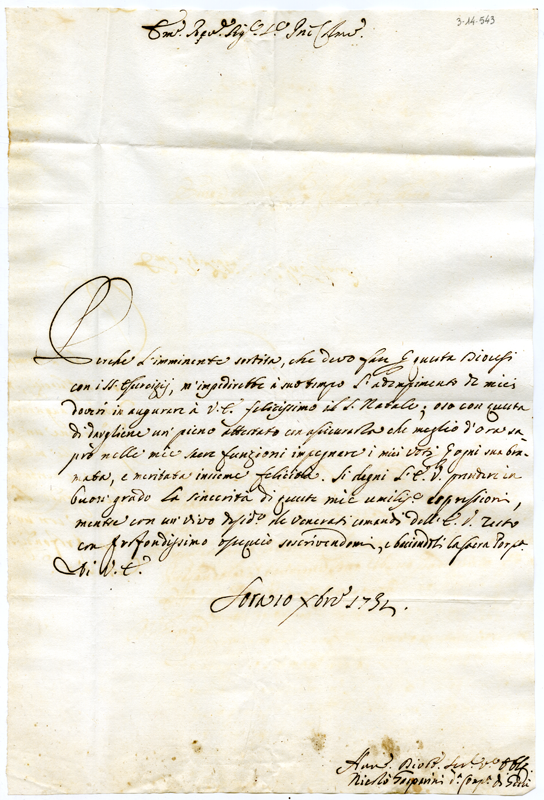 3-14-543
Em.º Rev.º Sig.e
Perche l'imminente sortita, che devo fare p questa Diocesi
con i SS. Esercizij, m'impedirebbe à suo tempo l'adempimento de miei
doveri in augurare à V. E. felicissimo il S. Natale; oso con questa
di dargliene un' pieno attestato con assicurarla che meglio d'ora sa-
prò nelle mie sacre funzioni impegnare i miei voti p ogni sua bra-
mata, e meritata insieme felicità. Si degni l'E. V. prendere in
buon grado la sincerità di queste mie umiliss.e espressioni,
mentre con un' vivo desid.o de venerati comandi dell' E. V. resto
con profondissimo ossequio soscrivendomi, e baciandoli la sacra Porp.a
Di V. E.
10 Xbre 1751.
Um.o Divot.o Serv.e Obb.
Nicolò Gasparini d. Comp.a di Giesù